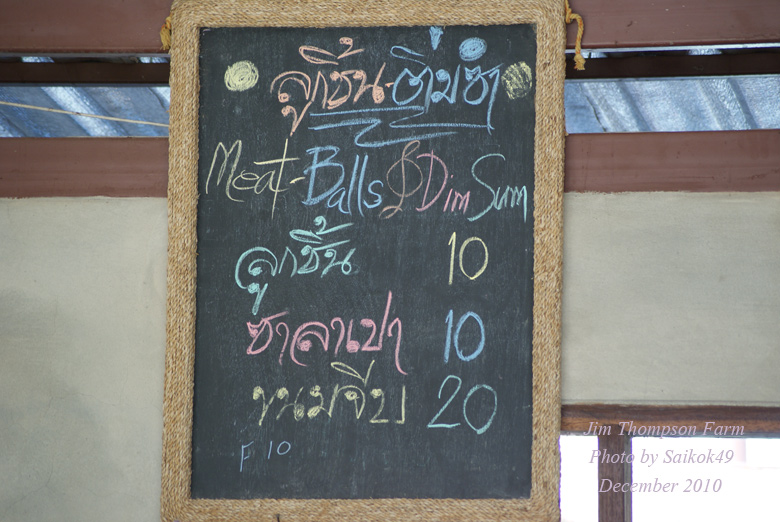 ลูกชิ้น-ติ่มซำ
Meat-Balls & Dim Sum
ลูกชิ้น 10
ซาลาเปา 10
ขนมจีบ 20
F 10
Jim Thompson Farm
Photo by Saikok49
December 2010